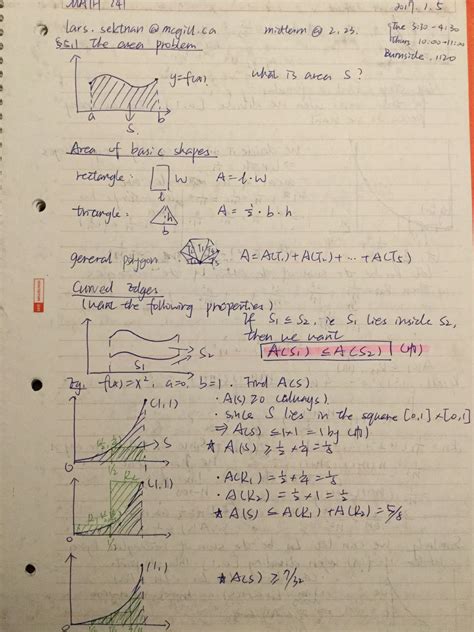 MATH 141
2017.1.5
lars.sektnan@mcgill.ca
midterm @ 2.23.
Tue 3:30-4:30
Thurs 10:00-11:00
Burnside. 1120
§5.1 The area problem
y=f(x)
what is area S?
a
b
S.
Area of basic shapes
rectangle: w A=l·w
l
triangle: h A=½·b·h
b
general polygon A=A(T₁)+A(T₂)+···+A(T₅)
Curved Edges
(want the following properties)
If S₁ ≤ S₂, ie S₁ lies inside S₂,
then we want
A(S₁) ≤ A(S₂)
S₁
S₂
Eg. f(x)=x², a=0, b=1. Find A(S).
(1,1)
S
0
· A(S) ≥ 0 (always)
· since S lies in the square [0,1]×[0,1]
⇒ A(S) ≤ 1×1=1 by
* A(S) ≥ ½·¼=⅛
(1,1)
R₂
0
· A(R₁)=½·¼=⅛
· A(R₂)=½×1=½
* A(S) ≤ A(R₁)+A(R₂)=5/8
(1,1)
0
* A(S) ≥ 7/32